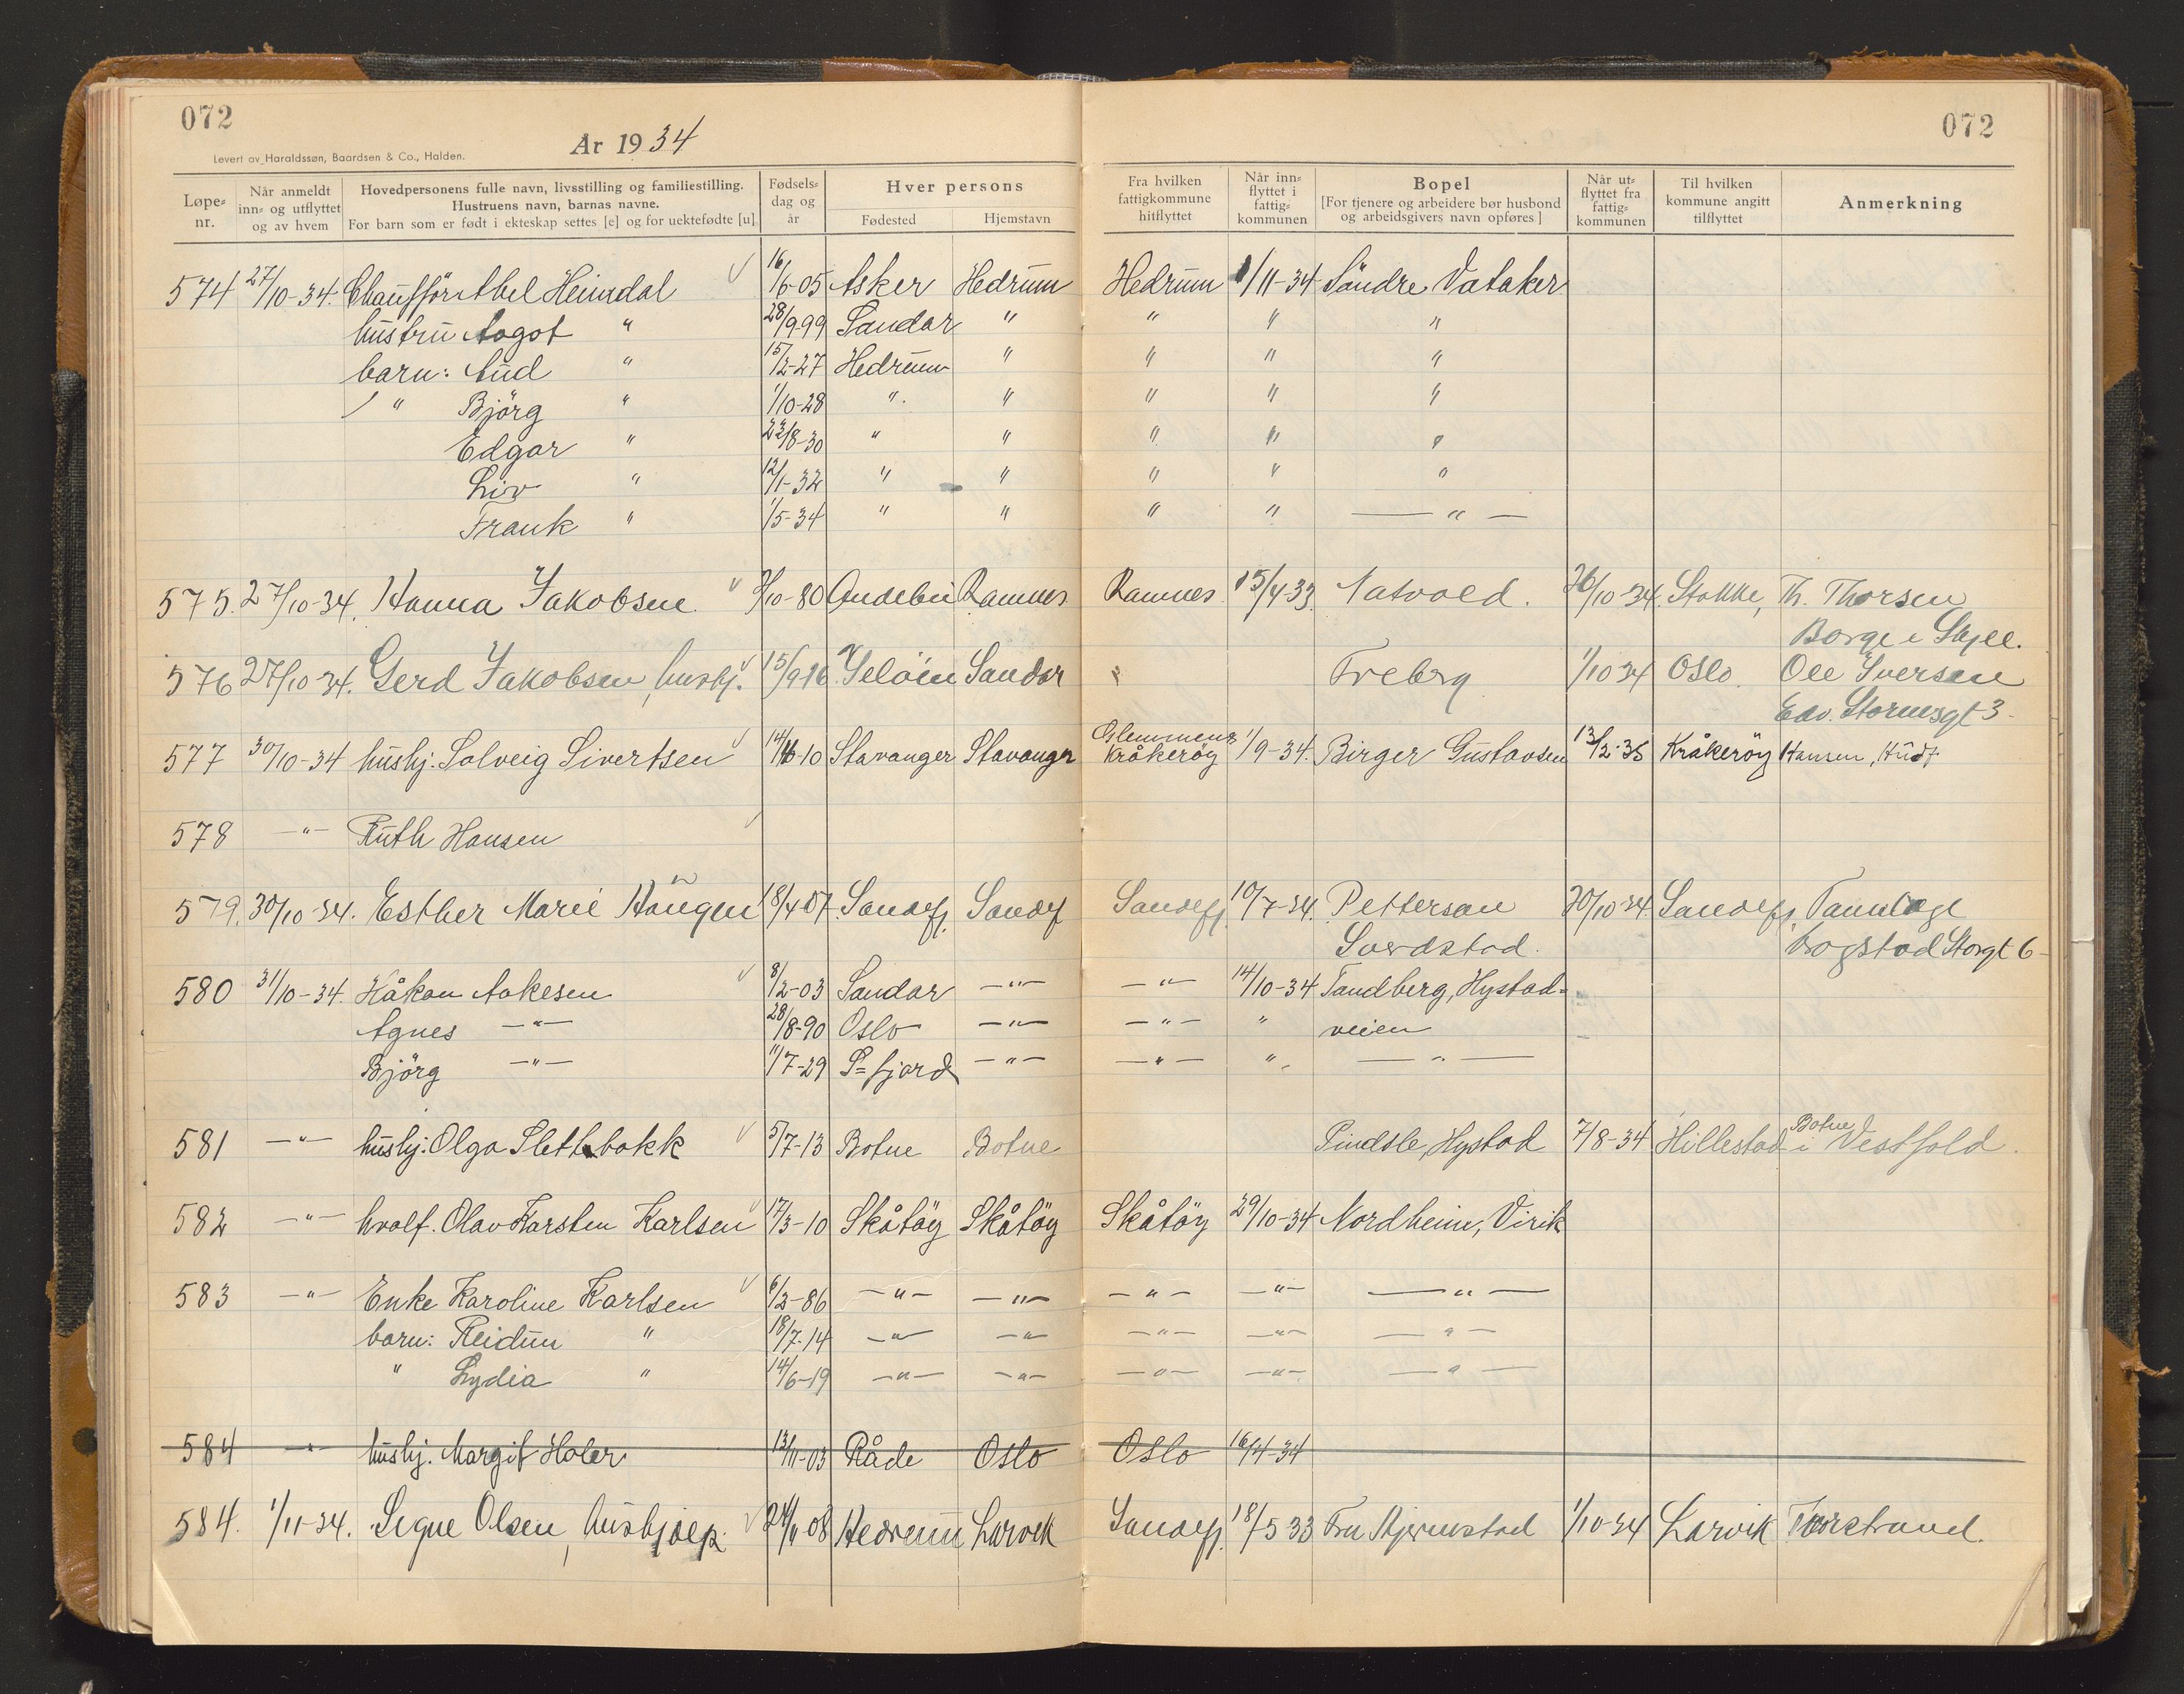 072
Levert av Haraldssøn, Baardsen & Co., Halden.
Ar 1934
072
Løpe-nr. | Når anmeldt inn- og utflyttet og av hvem | Hovedpersonens fulle navn, livsstilling og familiestilling. Hustruens navn, barnas navne. For barn som er født i ekteskap settes [e] og for uektefødte [u]. | Fødsels-dag og år | Hver persons Fødested | Hjemstavn | Fra hvilken fattigkommune hitflyttet | Når inn-flyttet i fattig-kommunen | Bopel [For tjenere og arbeidere bør husbond og arbeidsgivers navn opføres] | Når ut-flyttet fra fattig-kommunen | Til hvilken kommune angitt tilflyttet | Anmerkning
574 27/10-34. Chaufför Abel Heimdal 16/6-05 Asker Hedrum Hedrum 1/11-34 Söndre Vataker
hustru Aagot " 28/9-99 Sandar " " " "
barn: Aud " 15/2-27 Hedrum " " " "
" Björg " 1/10-28 " " " " "
Edgar " 23/8-30 " " " " "
Liv " 12/1-32 " " " " "
Frank " 1/5-34 " " " " — " —
575. 27/10-34. Hanna Jakobsen /10-80 Andebu Ramnes Ramnes 15/4-33. Natvold. 26/10-34. Stokke, Th. Thorsen
Borge i Skjee.
576 27/10-34. Gerd Jakobsen, hushj. 15/9 16 Jelöen Sandar " Trebrg 1/10 34 Oslo. Ole Iversen
Edv. Stormsgt 3.
577 30/10-34 hushj. Solveig Sivertsen 14/10-10 Stavanger Stavanger Glemmens Kråkeröy 1/9-34. Birger Gustavsen 13/2-35 Kråkeröy Hansen,
578 — " — Ruth Hansen
579. 30/10-34. Esther Marie Haugen 18/4 07 Sandefj. Sandef Sandefj. 10/7-34. Petterson 30/10-34. Sandefj. Tannlæge
Bogstad Storgt 6
580 31/10-34. Håkon Aakesen 8/2-03 Sandar — " — — " — 14/10-34 Tandberg, Hystad-
Agnes — " — 28/8-90 Oslo — " — — " — " veien
Björg — " — 11/7-29 S=fjord — " — — " — " — " —
581 — " — hushj. Olga Slettebakk 5/7-13 Botne Botne Pindsle, Hystad 7/8-34 Hillestad i Botne Vestfold.
582 — " — hvalf. Olav Karsten Karlsen 17/3-10 Skåtöy Skåtöy Skåtöy 29/10-34 Nordheim, Virik
583 — " — Enke Karoline Karlsen 6/2-86 — " — — " — — " — — " — — " —
barn: Reidun " 18/7-14 — " — — " — — " — — " — — " —
" Lydia " 14/6-19 — " — — " — — " — — " — — " —
584 — " — hushj. Margit Holer 13/11-03 Råde Oslo Oslo 16/4-34
584. 1/11-34. Signe Olsen, hushjælp. 24/11-08 Hedrum Larvik Sandefj. 18/5 33 Fru Bjerkestad 1/10-34 Larvik Torstrand.